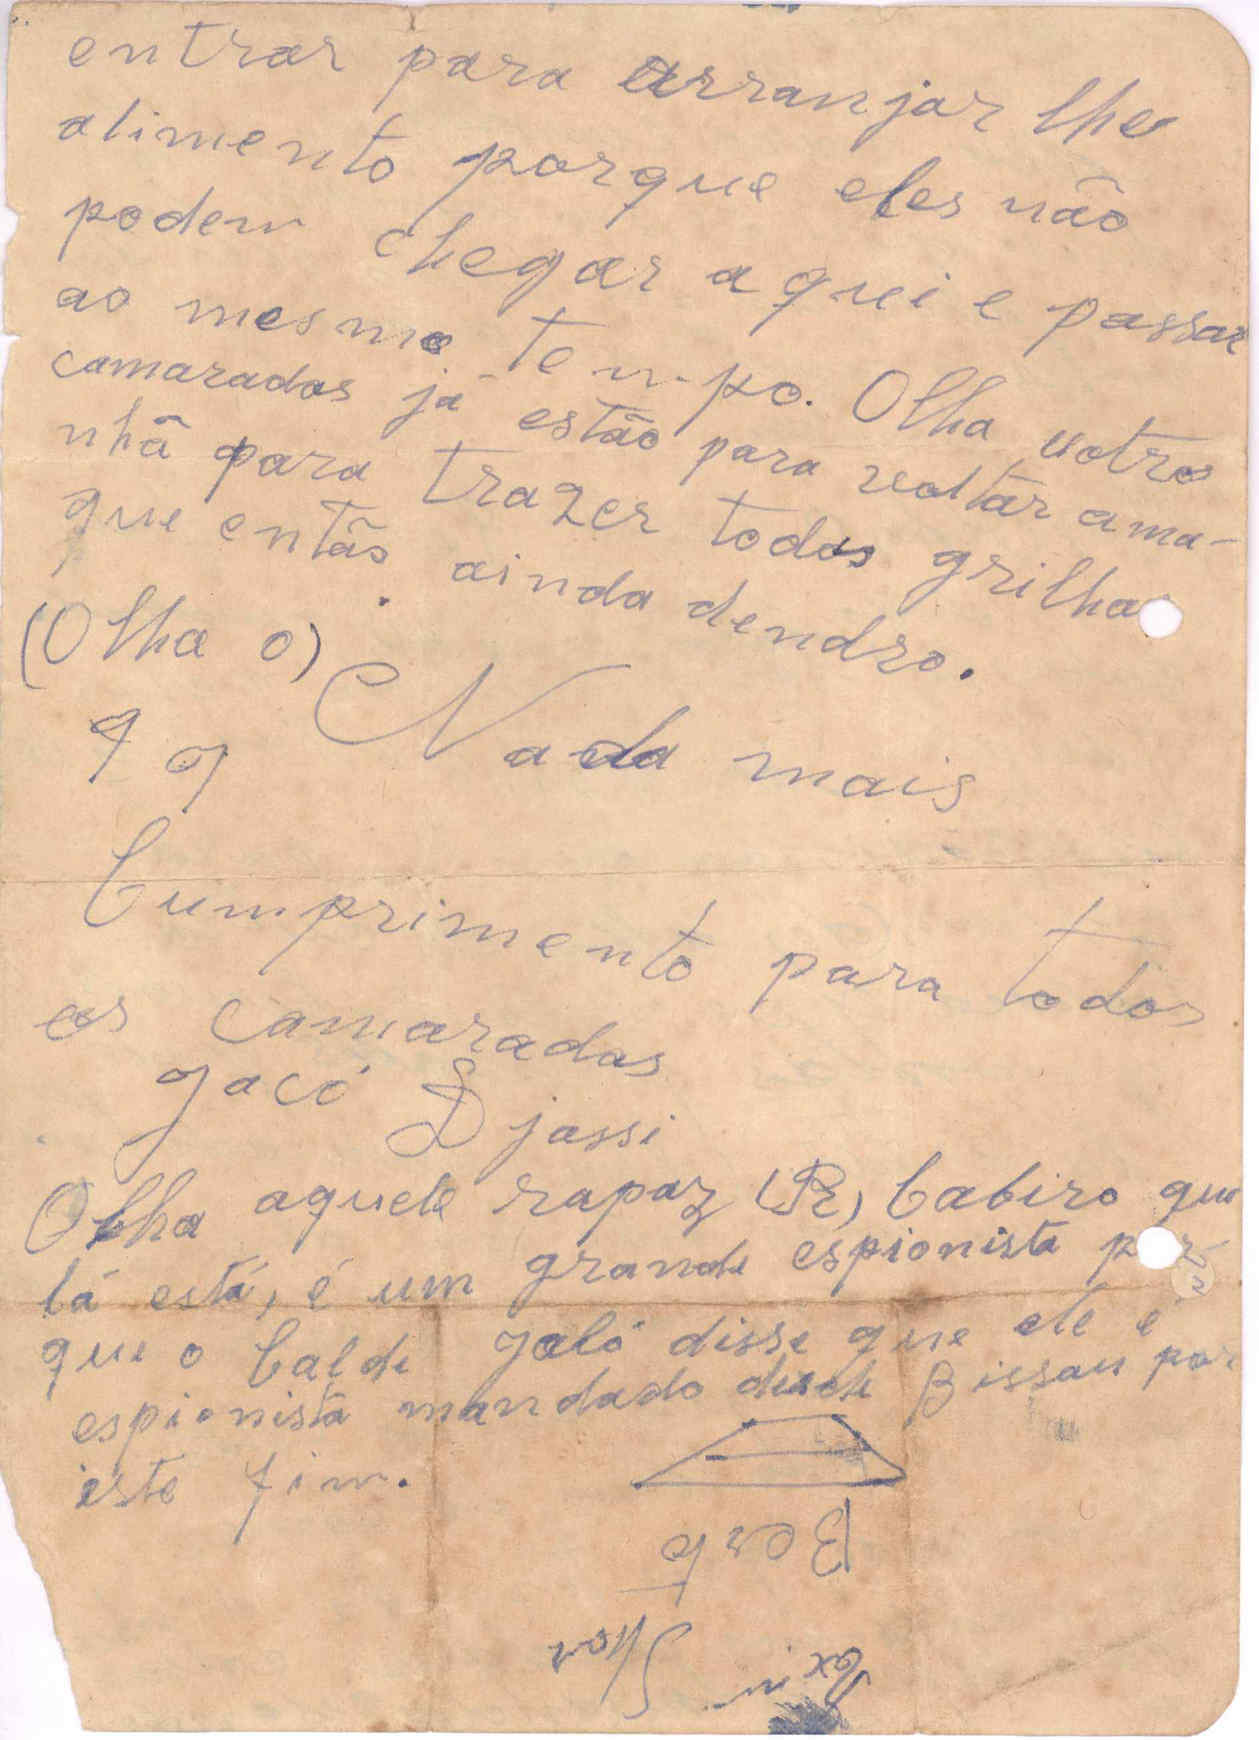 entrar para arranjar lhe
alimento porque eles não
podem chegar aqui e passar
ao mesmo tempo. Olha outro
camaradas já estão para voltar ama-
nhã para trazer todos grilhas
que então ainda dendro.
(Olha o)
Nada mais
Cumprimento para todos
os camaradas
Jacó Djassi
Olha aquele rapaz (R) Cabiro que
lá está, é um grande espionista por-
que o Calde Jaló disse que ele é
espionista mandado desde Bissau por
este fim.